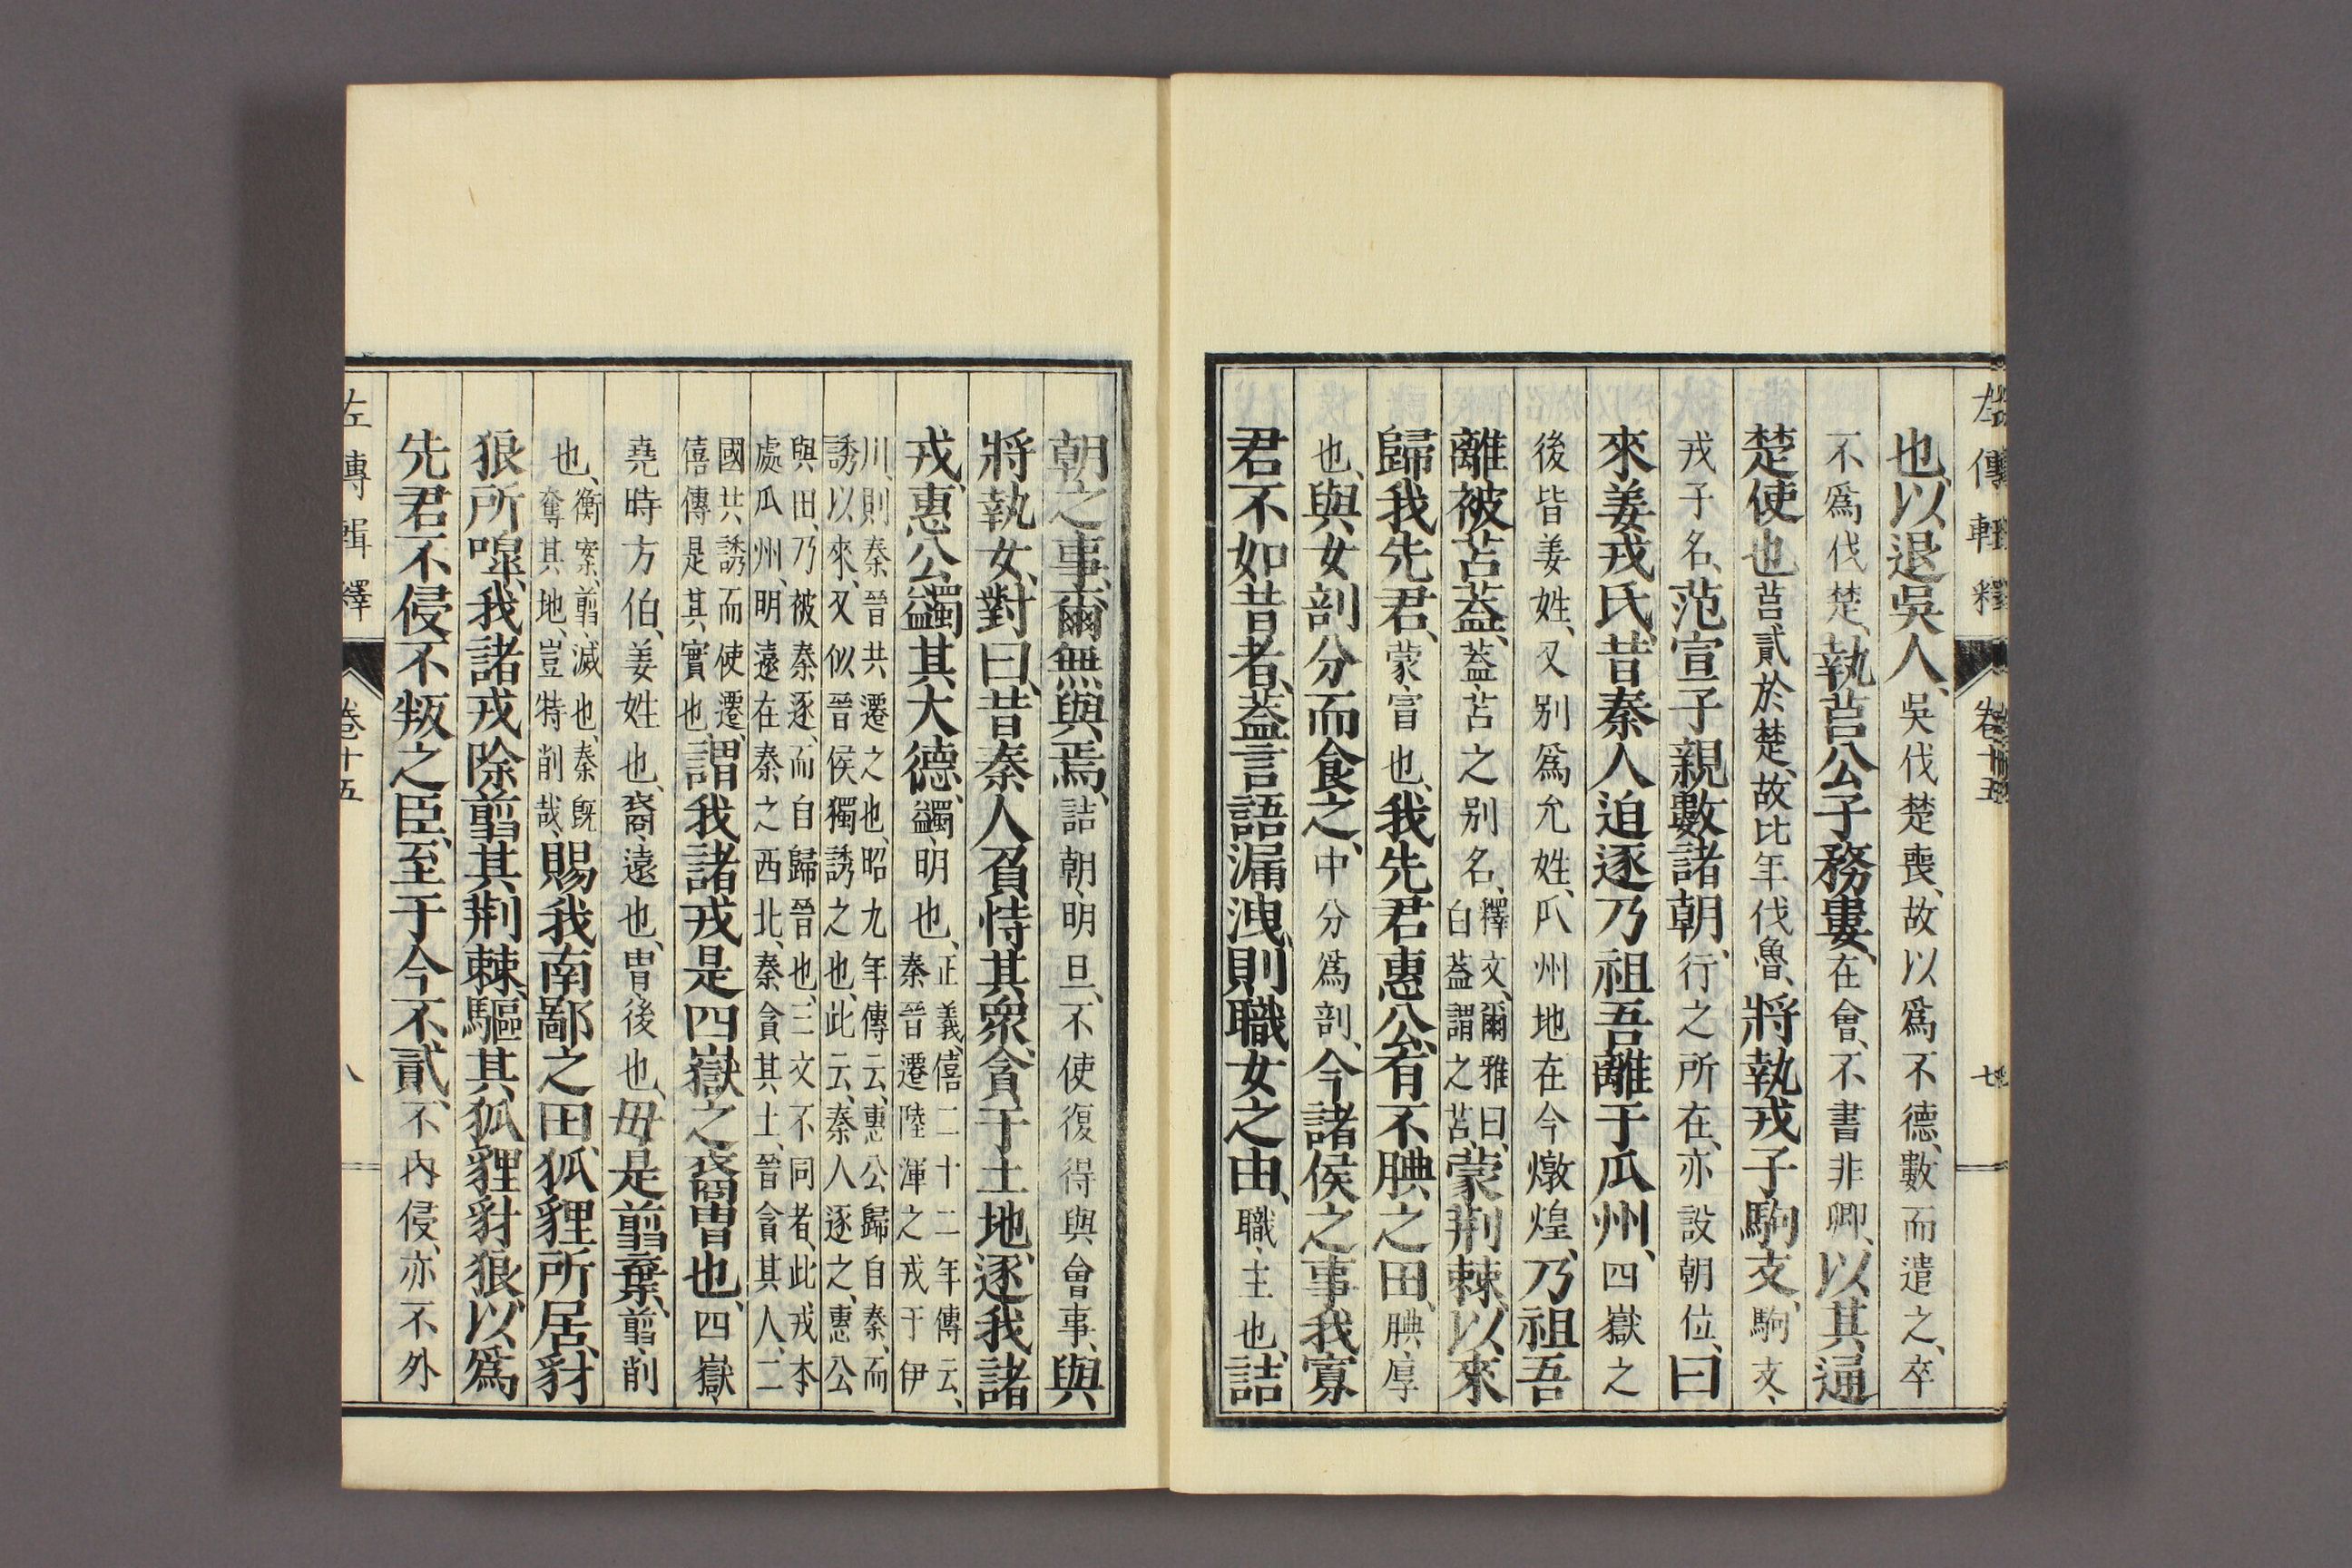 左傳輯釋 卷十五 七
也、以退吳人、吳伐楚喪、故以爲不德、數而遣之、卒
不爲伐楚、執莒公子務婁、在會、不書非卿、以其通
楚使也、莒貳於楚、故比年伐魯、將執戎子駒支、駒支、
戎子名、范宣子親數諸朝、行之所在、亦設朝位、曰
來姜戎氏、昔秦人迫逐乃祖吾離于瓜州、四嶽之
後皆姜姓、又別爲允姓、爪州地在今燉煌、乃祖吾
離被苫蓋、蓋、苫之別名、釋文、爾雅曰、白蓋謂之苫、蒙荆棘、以來
歸我先君、蒙、冒也、我先君惠公、有不腆之田、腆、厚
也、與女剖分而食之、中分爲剖、今諸侯之事我寡
君不如昔者、蓋言語漏洩、則職女之由、職、主也、詰
朝之事、爾無與焉、詰朝、明旦、不使復得與會事、與
將執女、對曰、昔秦人負恃其衆、貪于土地、逐我諸
戎、惠公蠲其大德、蠲、明也、正義、僖二十二年傳云、秦晉遷陸渾之戎于伊
川、則秦晉共遷之也、昭九年傳云、惠公歸自秦、而誘以來、又似晉侯獨誘之也、此云、秦人逐之、惠公
與田、乃被秦逐、而自歸晉也、三文不同者、此戎本處瓜州、明遠在秦之西北、秦貪其土、晉貪其人、二
國共誘而使遷、僖傳是其實也、謂我諸戎是四嶽之裔冑也、四嶽、
堯時方伯、姜姓也、裔、遠也、冑、後也、毋是翦棄、翦、削
也、衡案、翦、滅也、秦旣奪其地、豈特削哉、賜我南鄙之田、狐貍所居、豺
狼所嘷、我諸戎除翦其荆棘、驅其狐貍豺狼、以爲
先君不侵不叛之臣、至于今不貳、不內侵、亦不外
左傳輯釋 卷十五 八